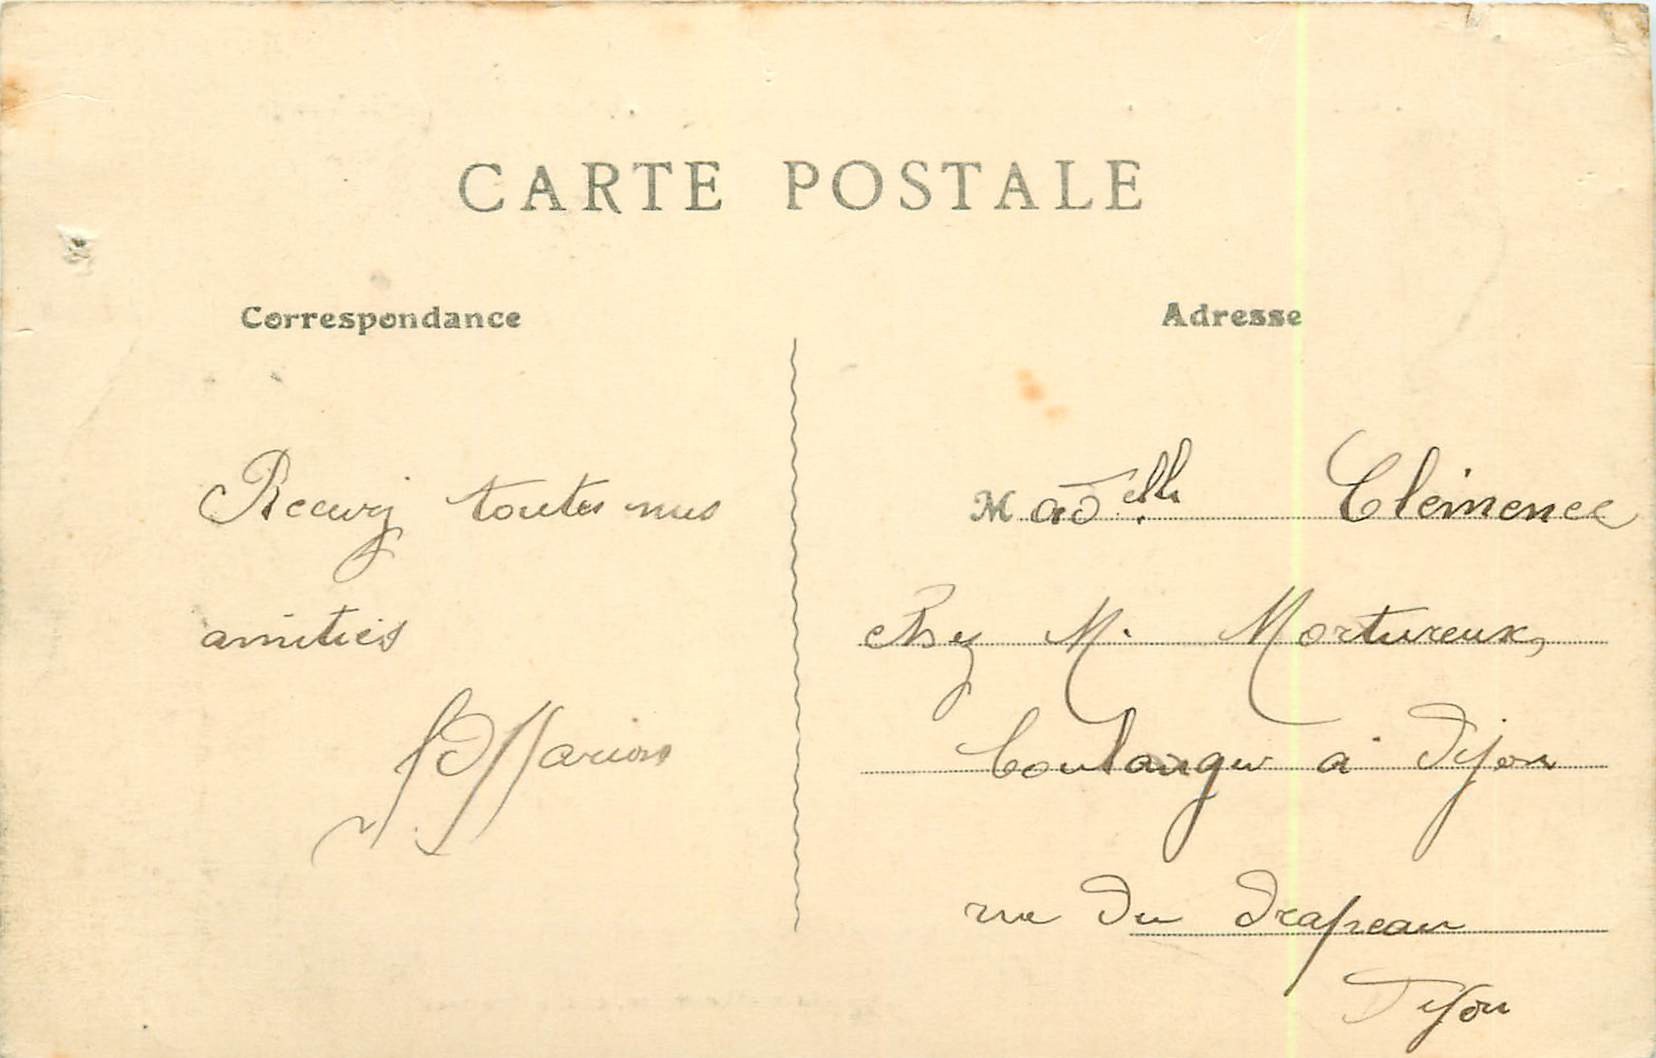 CARTE POSTALE
Correspondance
Adresse
Recevez toutes nos
amitiés
Marion
Madelle Clémence
chez M. Mortureux,
boulanger à Dijon
rue du Drapeau
Dijon